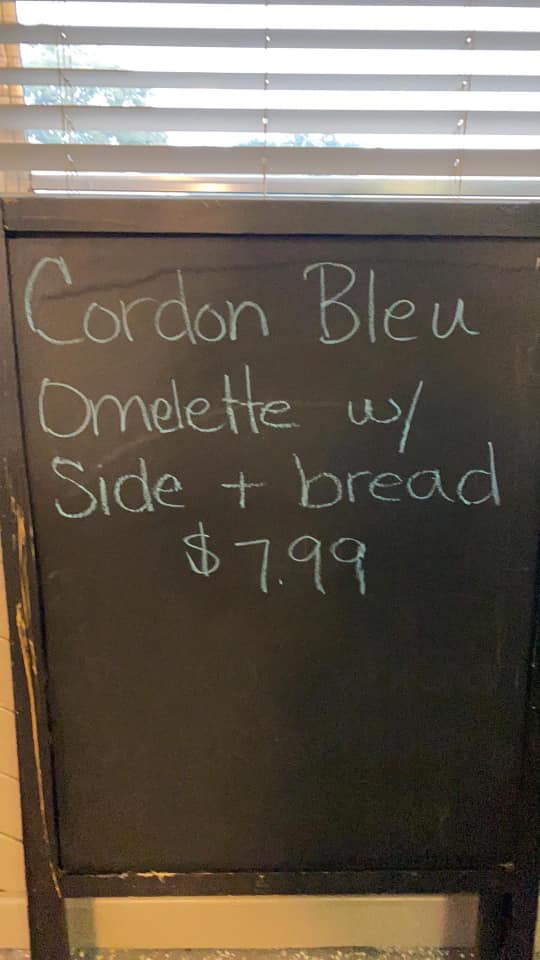 Cordon Bleu
Omelette w/
Side + bread
$7.99